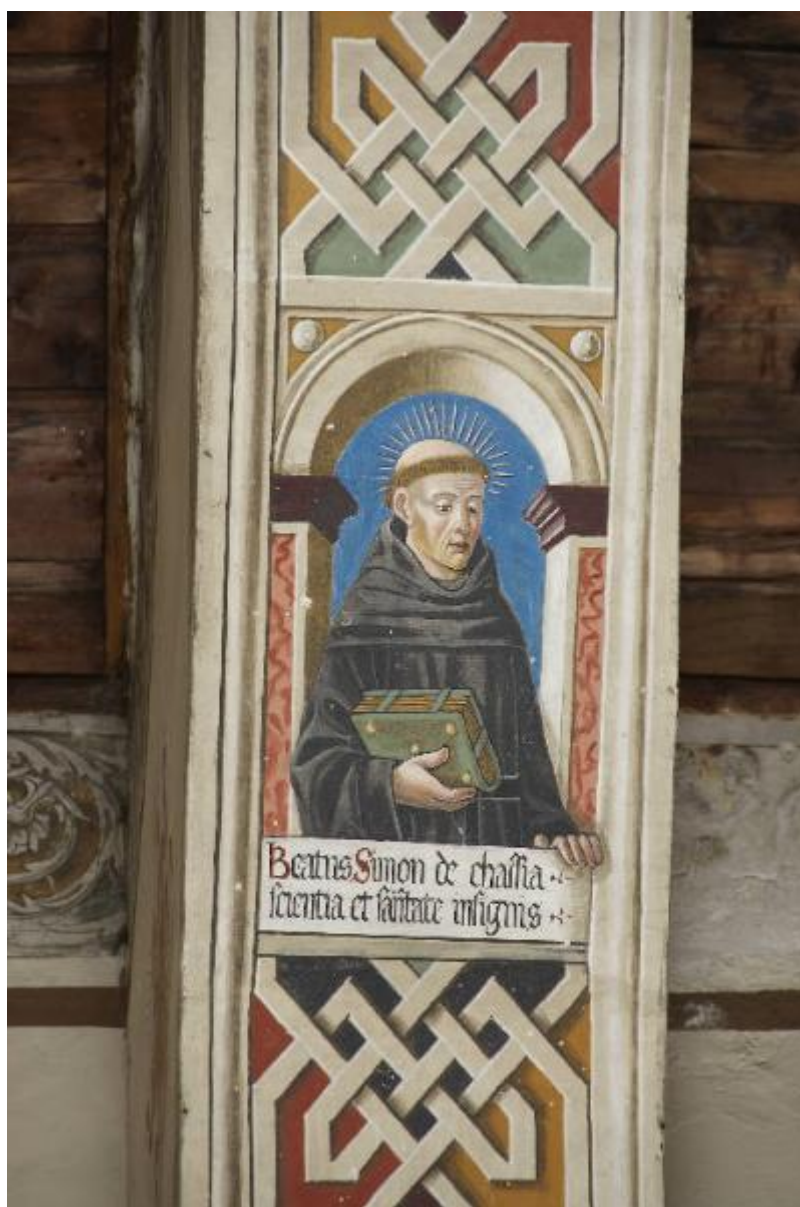 Beatus Simon de chassia
scientia et sa̅ctitate insignis